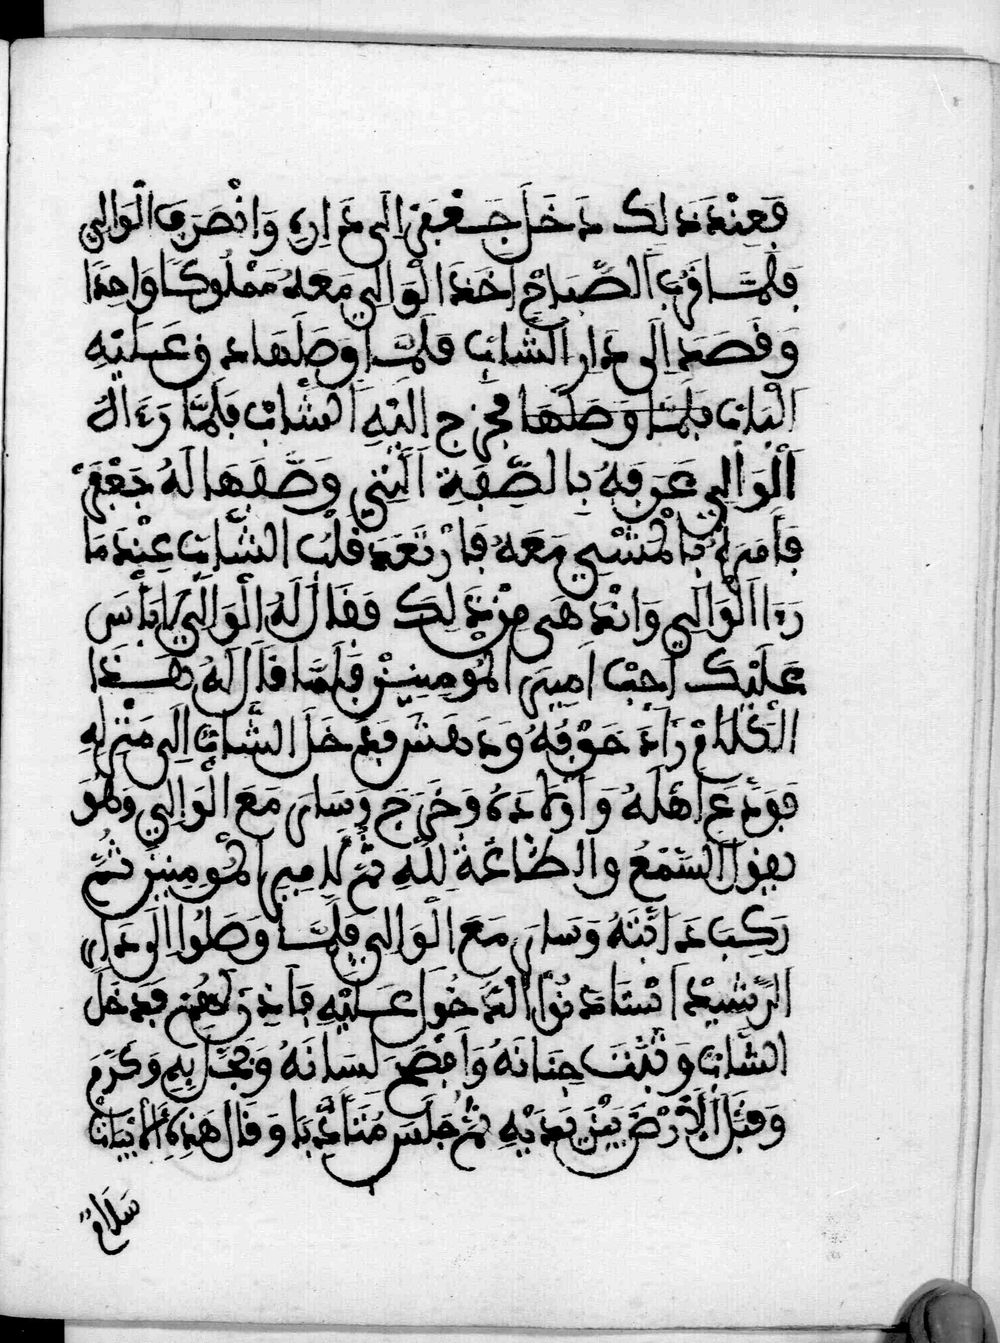 فَعِنْدَ ذَلِكَ دَخَلَ جَعْفَرْ اِلَى دَارِهِ وَانْصَرَفَ الْوَالِي
فَلَمَّا قَرُبَ الصَّبَاحْ اَخَذَ الْوَالِي مَعَهُ مَمْلُوكًا وَاحِدًا
وَقَصَدَ اِلى دَارِ الشابْ فَلَمَّا وَصَلَهَا دق عَلَيْهِ
الْبَابْ فَلَمَّا وَصَلَهَا فخرج اِلَيْهِ الشَّابْ فَلَمَّا رَءَاهُ
اَلْوَالِي عَرَفَهُ بِالصِّفَةِ الَّتِي وَصَفَهَا لَهُ جَعْفَرْ
فَأَمَرَهُ بِالْمَشْيِ مَعَهُ فَارْتَعَدَ قَلْبُ الشَّابْ عِنْدَ مَا
رَءَا الْوَالِي وَانْدَهَى مِنْ ذَلِكَ فَقَالَ لَهُ الْوَالِي لَا بَأْسَ
عَلَيْكَ اَجِبْ اَمِيرَ الْمُومِنِينْ فَلَمَّا قَالَ لَهُ هَذَا
الْكَلَامْ زَادَ خَوْفُهُ وَدَهَشَ فَدَخَلَ الشَّابْ اِلَى مَنْزِلِهِ
فَوَدَّعَ اَهْلَهُ وَأَوْلَادَهُ وَخَرَجَ وَسَارَ مَعَ الْوَالِي وَهُوَ
يَقُولُ السَّمْعُ وَالطَّاعَةُ لِلَّهِ ثُمَّ لِامِيرِ الْمُومِنِينْ ثُمَّ
رَكِبَ دَابَّتَهُ وَسَارَ مَعَ الْوَالِي فَلَمَّا وَصَلُوا اِلَى دَارِ
الرَّشِيدْ اسْتَاذَنُوا الدُّخُولَ عَلَيْهِ فَاَذِنَ لَهُمْ فَدَخَلَ
الشَّابْ وَثَبَّتَ جَنَانَهُ وَاَفْصَحَ لِسَانَهُ وَبَجَّلَ بِهِ وَكَرَّمَ
وَقَبَّلَ الْأَرْضَ بَيْنَ يَدَيْهِ ثُمَّ جَلَسَ مُتَأَدِّبًا وَقَالَ هَذِهِ الْأَبْيَاتْ
سَلَامٌ